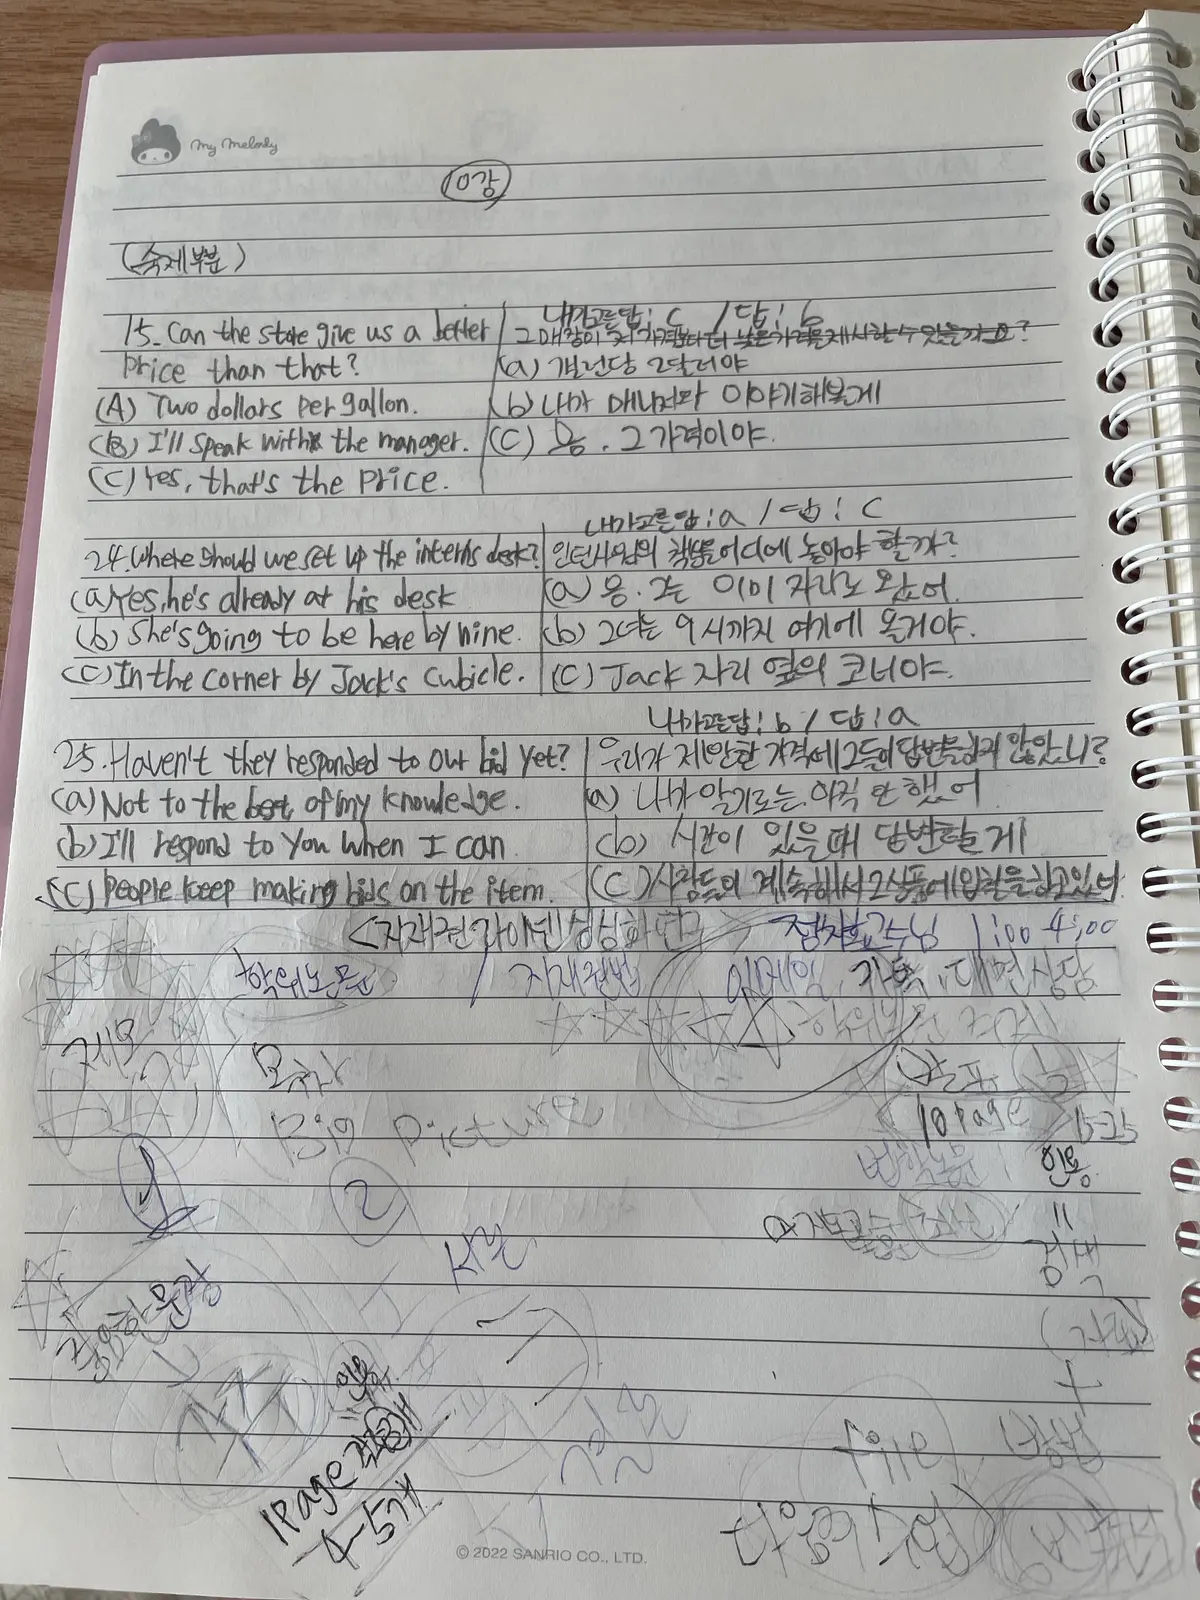 My Melody
10강
(숙제부분)
내가고른답: c / 답: b
15. Can the store give us a better
price than that?
(A) Two dollars per gallon.
(B) I'll speak with the manager.
(C) Yes, that's the price.
그 매장이 저 가격보다 더 낮은 가격을 제시할 수 있을까요?
(a) 갤런당 2달러야
(b) 내가 매니저와 이야기해볼게
(C) 응. 그 가격이야.
내가고른답: a / 답: c
24. Where should we set up the interns desk?
(a) Yes, he's already at his desk
(b) She's going to be here by nine.
(C) In the corner by Jack's cubicle.
인턴사원의 책상을 어디에 놓아야 할까?
(a) 응. 그는 이미 자리로 왔어.
(b) 그녀는 9시까지 여기에 올거야.
(C) Jack 자리 옆의 코너야.
내가고른답: b / 답: a
25. Haven't they responded to our bid yet?
(a) Not to the best of my knowledge.
(b) I'll respond to you when I can
(C) People keep making bids on the item.
우리가 제안한 가격에 그들이 답변을 하지 않았니?
(a) 내가 알기로는 아직 안 했어
(b) 시간이 있을 때 답변할게
(C) 사람들의 계속해서 그 상품에 입찰을 하고있어
교수님 1:00 4:00
학위논문 / 지재권법 이메일, 카톡, 대면상담
학위논문
제목
목차
Big picture
10page
인용
=
검색
1
2
서론
중요한 문장
+
file 방법
결론
인용
1page 각주 3개
4-5개
© 2022 SANRIO CO., LTD.